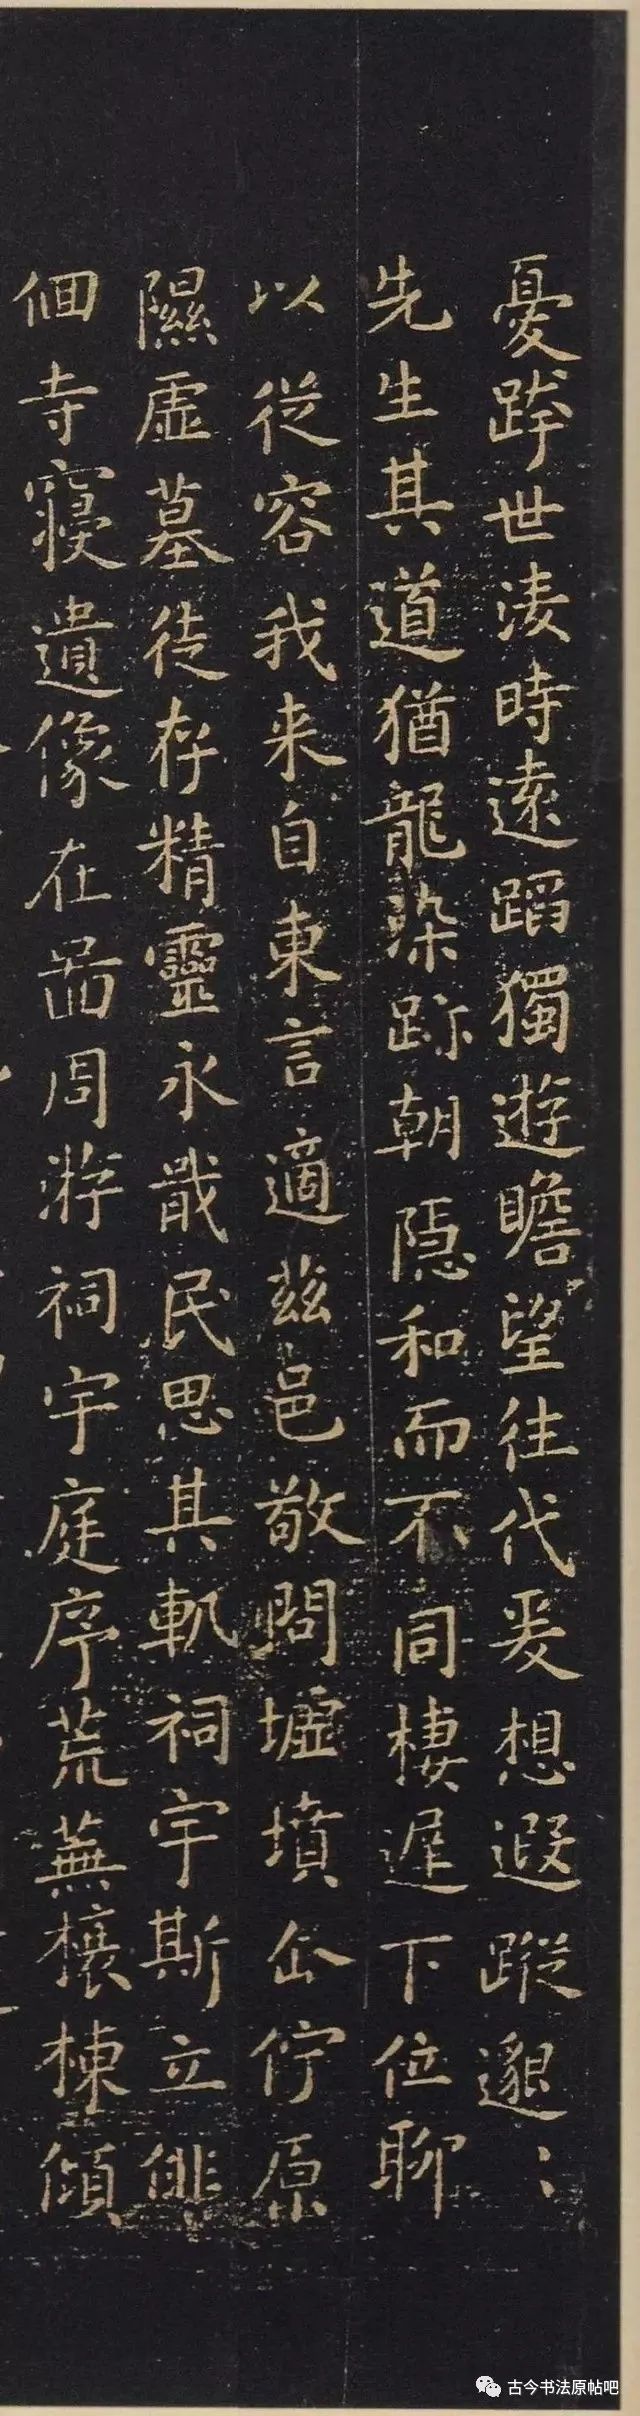 憂跨世淩時遠蹈獨遊瞻望往代爰想遐蹤邈〻
先生其道猶龍染跡朝隱和而不同棲遲下位聊
以從容我来自東言適茲邑敬問墟墳企佇原
隰虛墓徒存精靈永戢民思其軌祠宇斯立俳
佪寺寢遺像在啚周游祠宇庭序荒蕪榱棟傾
古今书法原帖吧